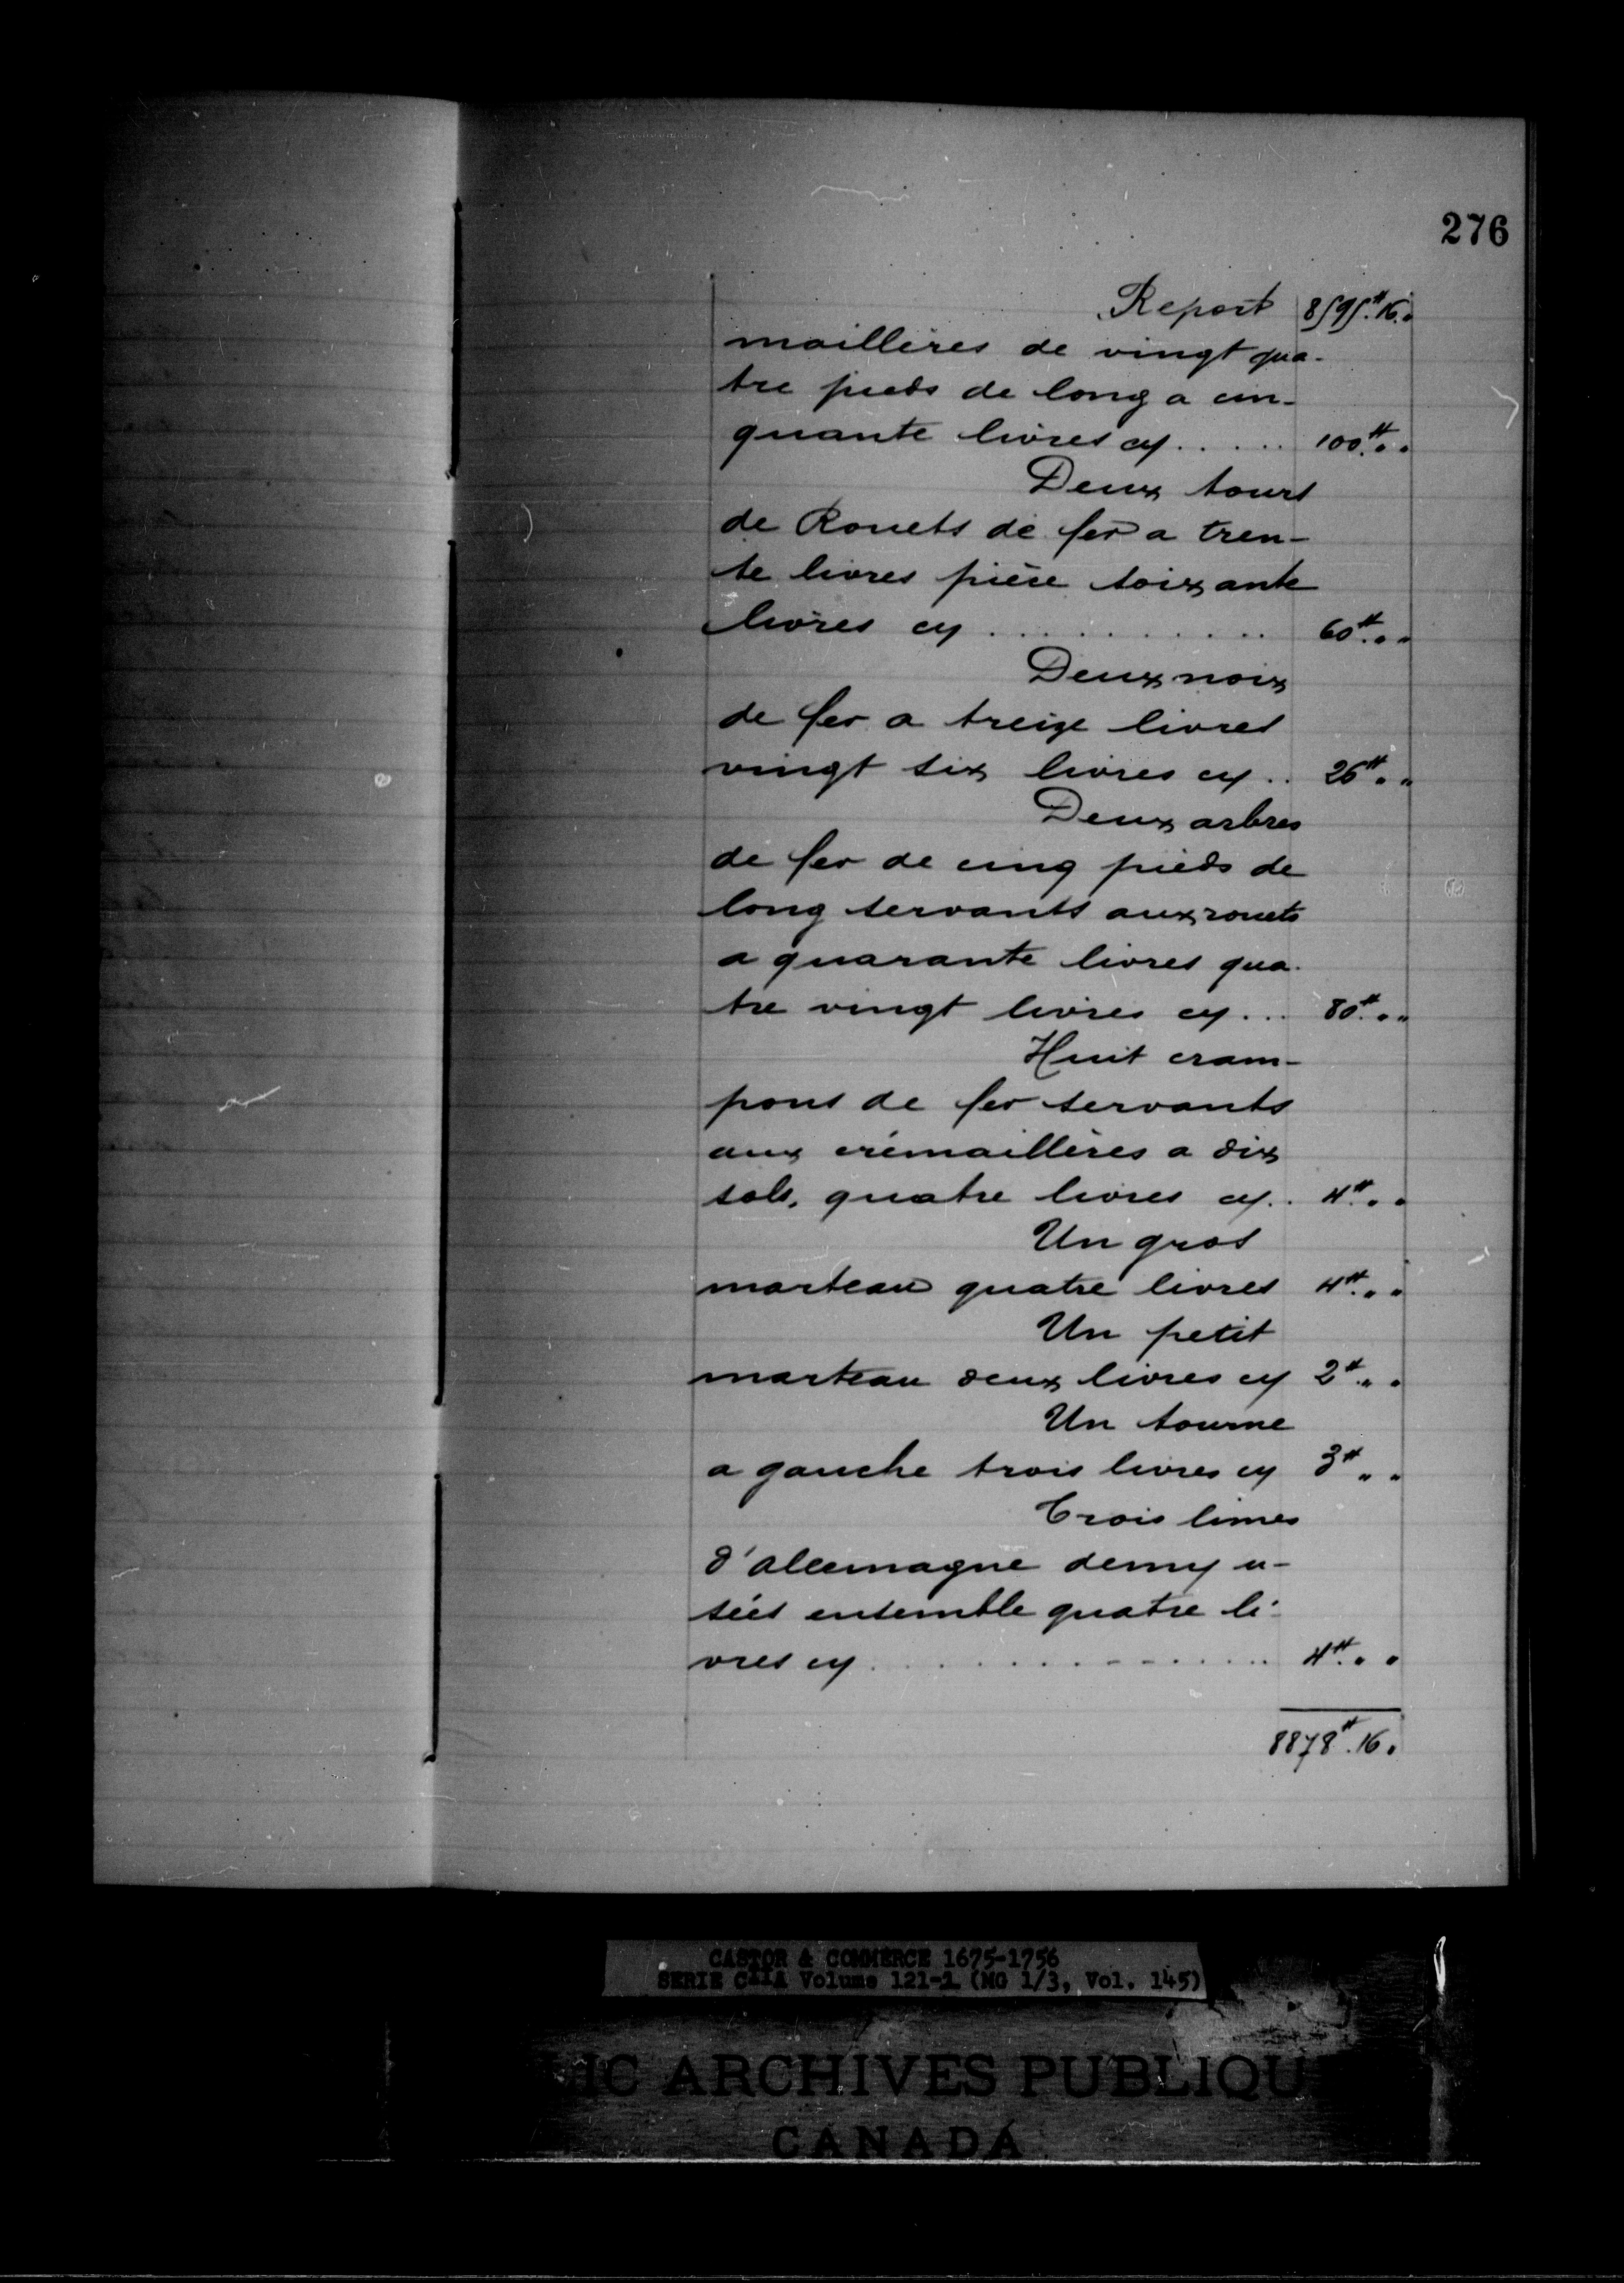 276
Report 8595#.16.
maillères de vingt qua-
tre pieds de long a cin-
quante livres cy..... 100#.. "
Deux tours
de Rouets de fer a tren-
te livres pièce soixante
livres cy........... 60#.. "
Deux noix
de fer a treize livres
vingt six livres cy.. 26#. "
Deux arbres
de fer de cinq pieds de
long servants aux rouets
a quarante livres qua-
tre vingt livres cy... 80#.. "
Huit cram-
pons de fer servants
aux crémaillères a dix
sols. quatre livres cy.. 4#.. "
Un gros
marteau quatre livres 4#.. "
Un petit
marteau deux livres cy 2#.. "
Un tourne
a gauche trois livres cy 3#. "
Trois limes
d'allemagne demy u-
sées ensemble quatre li-
vres cy.............. 4#.. "
8878#.16.
CASTOR & COMMERCE 1675-1756
SERIE C11A Volume 121-1 (MG 1/3, Vol. 145)
IC ARCHIVES PUBLIQU
CANADA